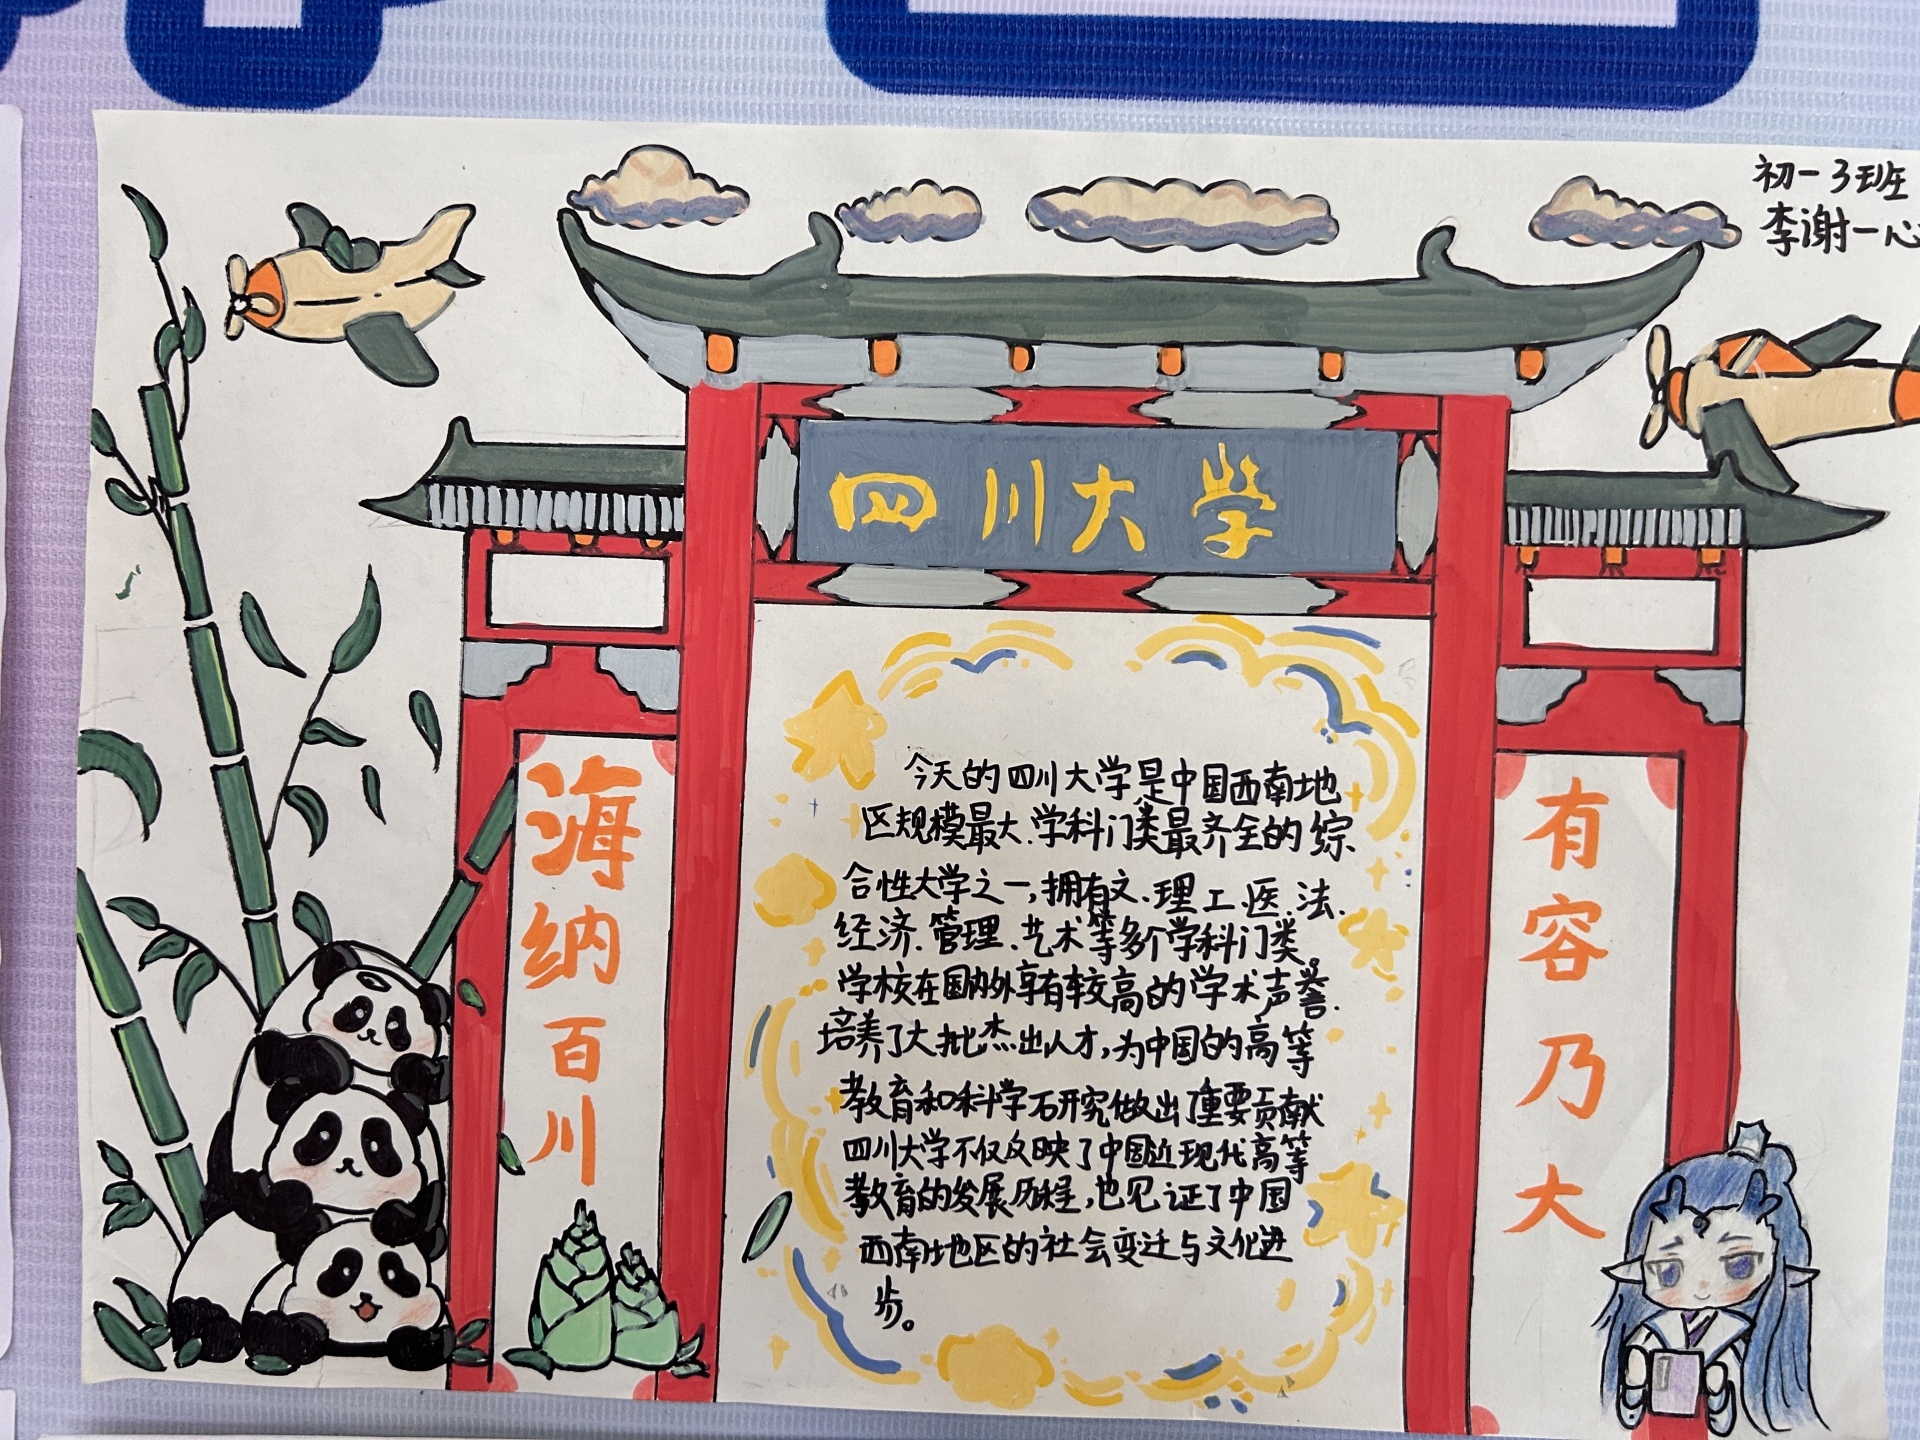 初一3班
李谢一心
四川大学
海纳百川
今天的四川大学是中国西南地
区规模最大、学科门类最齐全的综
合性大学之一,拥有文、理、工、医、法、
经济、管理、艺术等多个学科门类。
学校在国内外享有较高的学术声誉.
培养了大批杰出人才,为中国的高等
教育和科学研究做出了重要贡献
四川大学不仅反映了中国近现代高等
教育的发展历程,也见证了中国
西南地区的社会变迁与文化进
步。
有容乃大